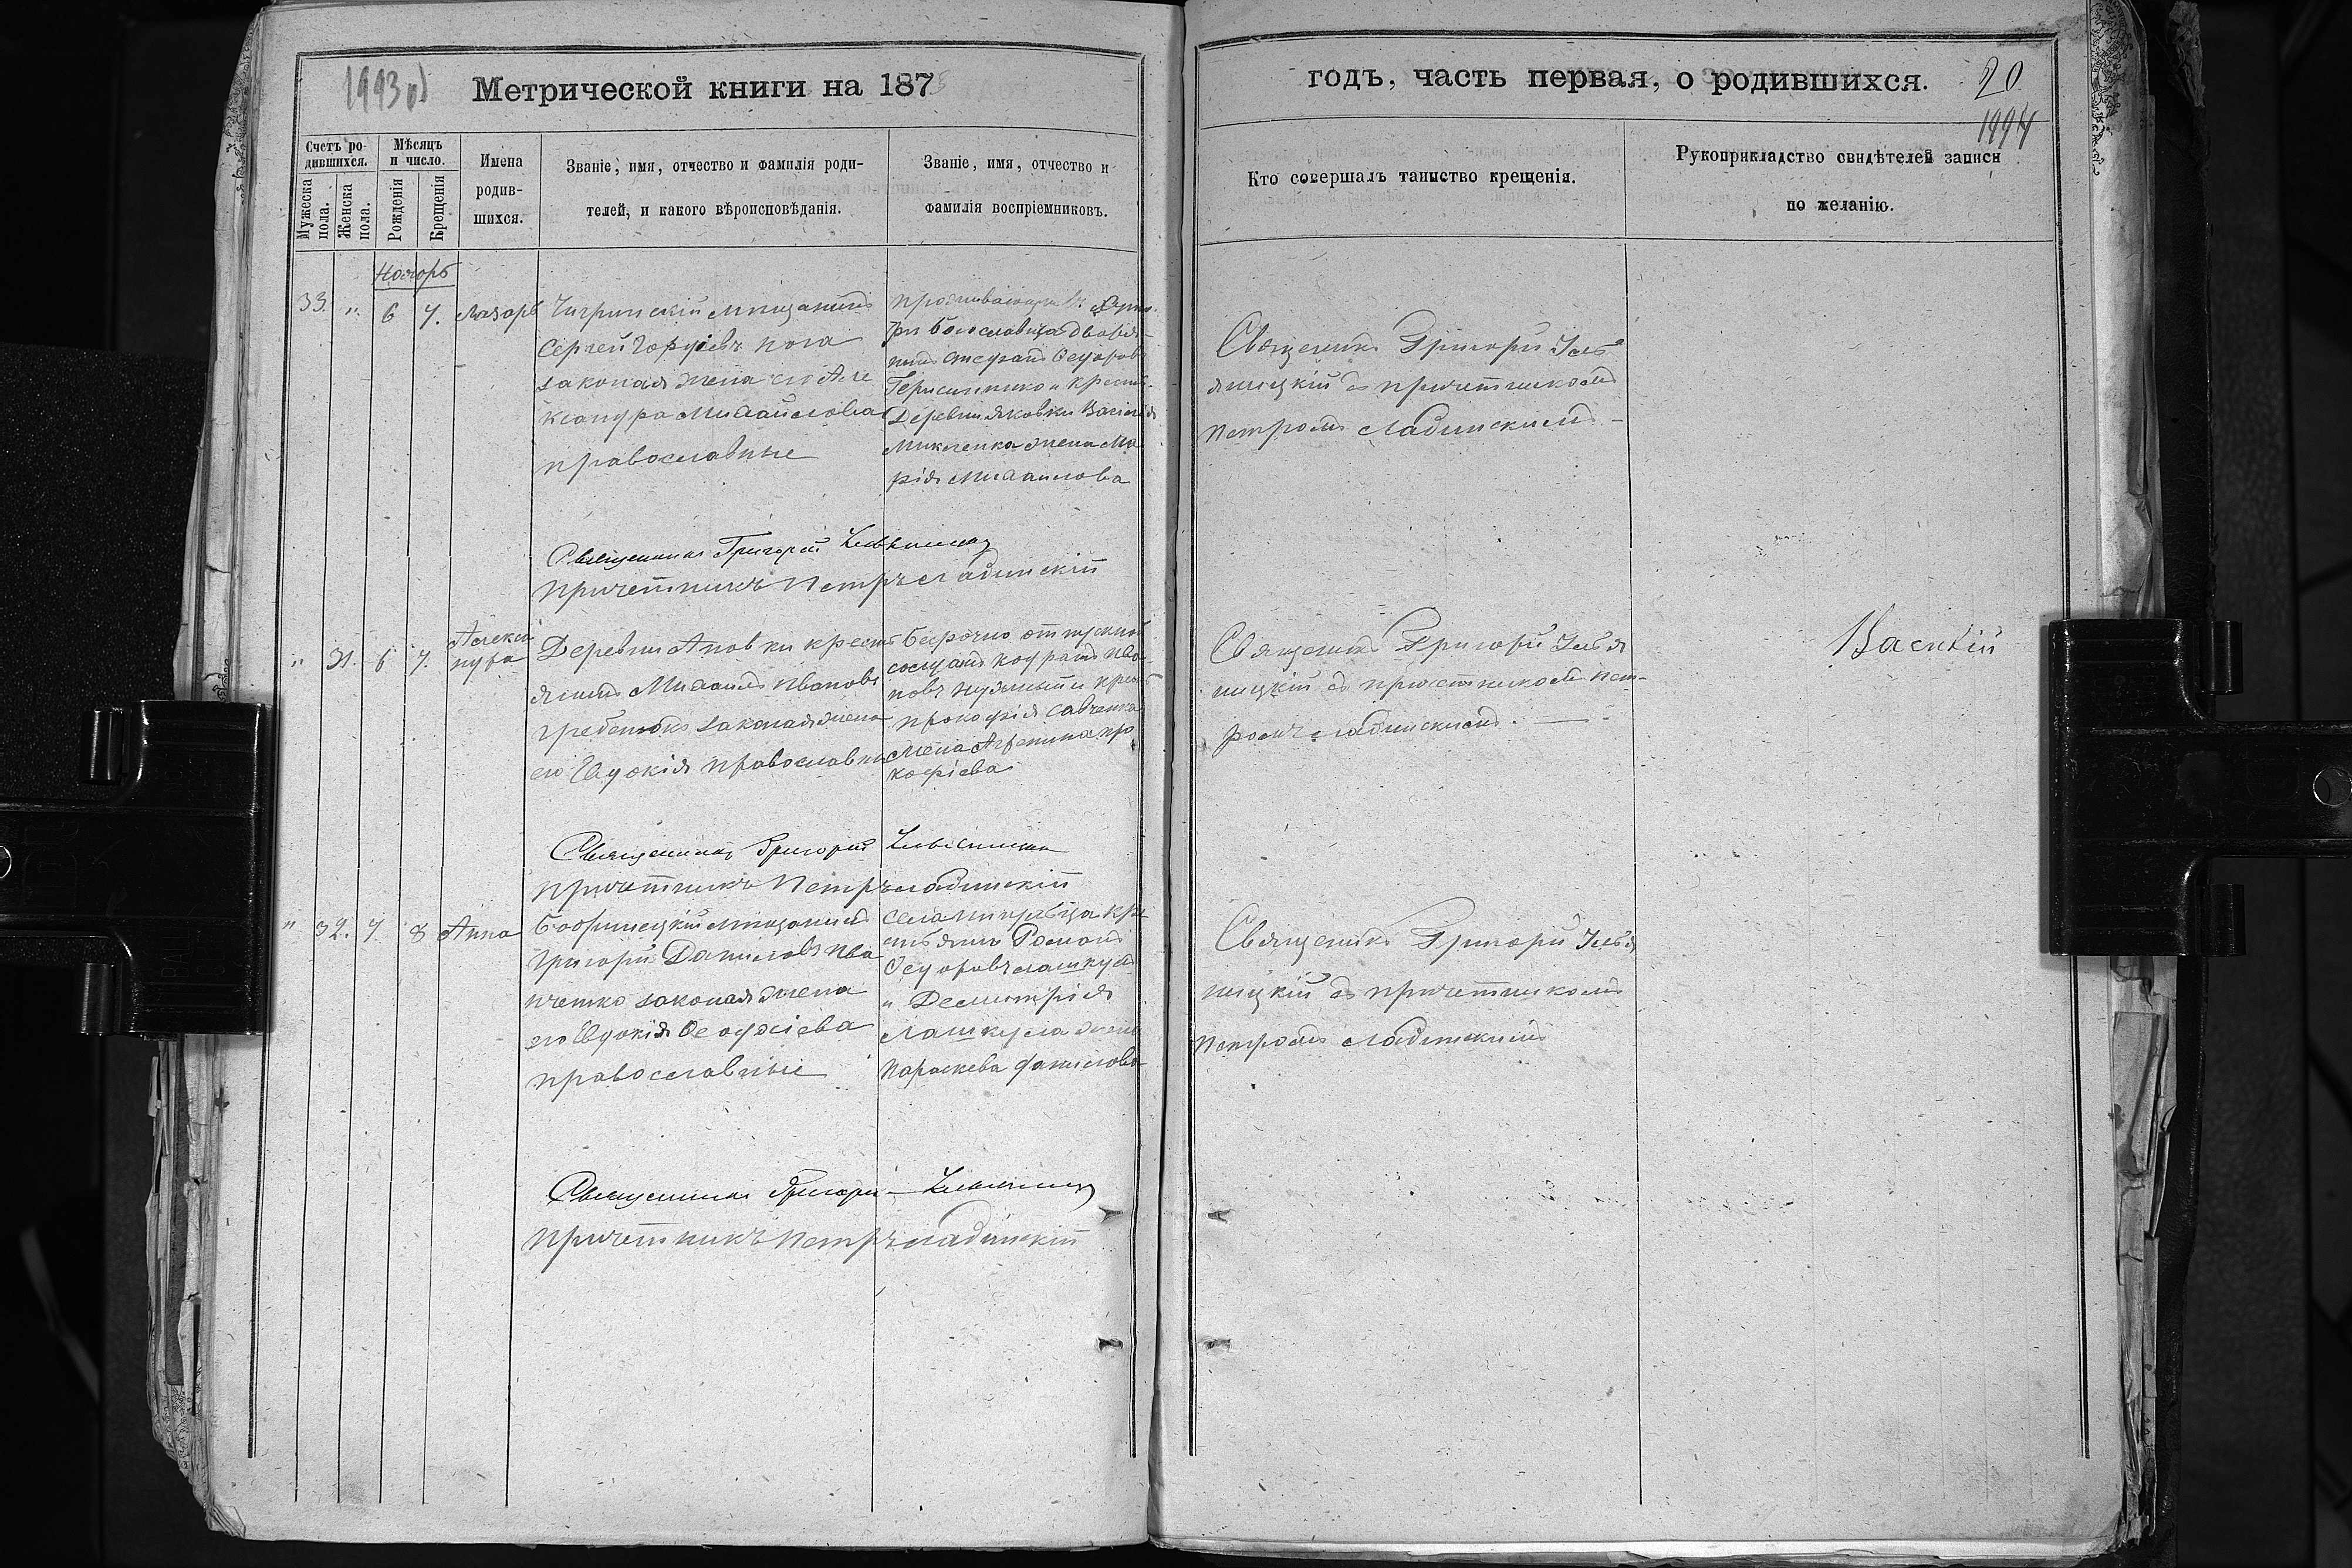 Метрической книги на 187
годъ, часть первая, о родившихся.
20
1994
Счетъ родившихся.
Мужеска пола.
Женска пола.
Мѣсяцъ и число.
Рожденія
Крещенія
Имена родив-
шихся.
Званіе, имя, отчество и фамилія роди-
телей, и какого вѣроисповѣданія.
Званіе, имя, отчество и
фамилія воспріемниковъ.
Кто совершалъ таинство крещенія.
Рукоприкладство свидѣтелей записи
по желанію.
Ноябрь
33. " 6 7. Лазарь
Чигринскій мѣщанинъ
Сергей
законая жена его Але
ксандра Михайлова
православные
дворя-
нинъ Стефанъ Ѳедоровъ
Деревни Яковки Василія
жена Ма
рія Михаилова
Священикъ Григорій Илья
ницкій съ причетникомъ
Петромъ Ладинскимъ
Священникъ Григорій
Причетникъ Петръ Ладинскій
" 31. 6 7. Алексан
дра
Деревни крестъ
янинъ Михаилъ Ивановъ
законая жена
его Евдокія православные
Безрочно отпускной
солдатъ Ива
новъ
Прокофія Савченка
жена Агрепина Про
кофіева
Священикъ Григорій Илья
ницкій съ причетникомъ Пет-
ромъ Ладинскимъ.
Василій
Священникъ Григорій
Причетникъ Петръ Ладинскій
" 32. 7 8 Анна
Бобринецкій мѣщанинъ
Григорій Даниловъ Ива
нченко законая жена
его Евдокія
православные
Села кре
стьянинъ Романъ
Ѳедоровъ Лашкулъ
и Деминтрія
Лашкула жена
Параскева Данилова
Священикъ Григорій Илья
ницкій съ причетникомъ
Петромъ Ладинскимъ
Священникъ Григорій
Причетникъ Петръ Ладинскій